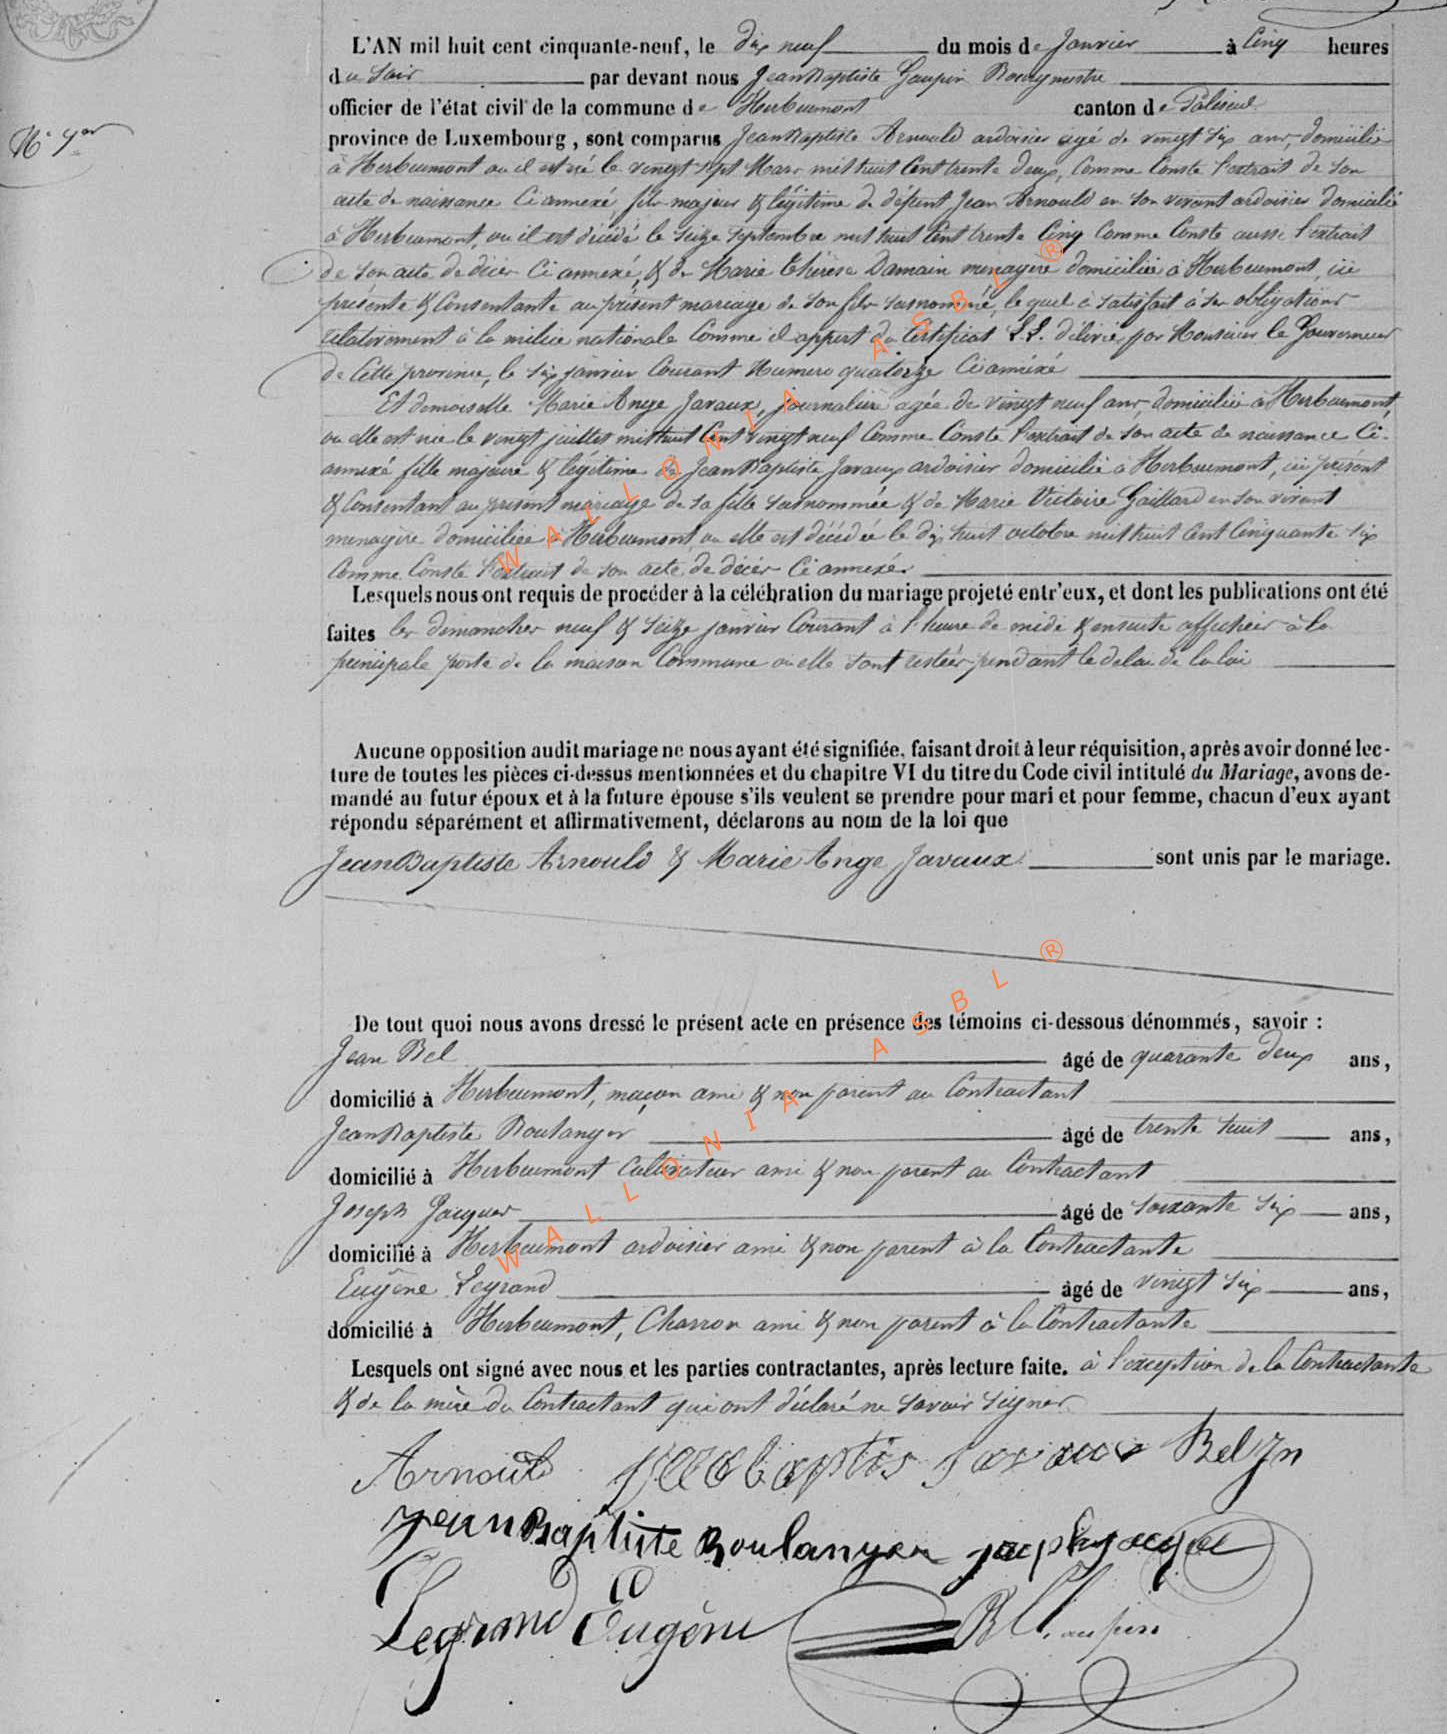 L'AN mil huit cent cinquante-neuf, le dix neuf du mois de Janvier à Cinq heures
du Soir par devant nous Jean Baptiste Gaupin Bourgmestre
officier de l'état civil de la commune de Herbeumont canton de Paliseul
N° 1er
province de Luxembourg, sont comparus Jean Baptiste Arnould ardoisier agé de vingt six ans, domicilié
à Herbeumont ou il est né le vingt sept Mars mil huit Cent trente deux, Comme Conste l'extrait de son
acte de naissance Ci annexé, fils majeur & légitime de défunt Jean Arnould en son vivant ardoisier domicilié
à Herbeumont, ou il est décédé le seize septembre mil huit Cent trente Cinq Comme Conste aussi l'extrait
de son acte de décès Ci annexé, & de Marie Thérèse Damain menagère domiciliée à Herbeumont, ici
présente & Consentante au présent mariage de son fils susnommé, le quel à satisfait à ses obligations
relativement à la milice nationale Comme il appert du Certificat L.L. délivré par Monsieur le Gouverneur
de Cette province, le six janvier Courant Numero quatorze Ci annéxé
Et demoiselle Marie Ange Javaux, journalière agée de vingt neuf ans, domiciliée à Herbeumont,
ou elle est née le vingt juillet mil huit Cent vingt neuf Comme Conste l'extrait de son acte de naissance Ci-
annexé fille majeure & légitime de Jean Baptiste Javaux ardoisier domicilié à Herbeumont, ici présent
& Consentant au présent mariage de sa fille susnommée & de Marie Victoire Gaillard en son vivant
menagère domiciliée à Herbeumont, ou elle est décédée le dix huit octobre mil huit Cent Cinquante six
Comme Conste l'extrait de son acte de décès Ci annexés
Lesquels nous ont requis de procéder à la célébration du mariage projeté entr'eux, et dont les publications ont été
faites les dimanches neuf & seize janvier Courant à l'heure de midi & ensuite affichées à la
principale porte de la maison Commune ou elle sont restées pendant le delai de la loi
Aucune opposition audit mariage ne nous ayant été signifiée, faisant droit à leur réquisition, après avoir donné lec-
ture de toutes les pièces ci-dessus mentionnées et du chapitre VI du titre du Code civil intitulé du Mariage, avons de-
mandé au futur époux et à la future épouse s'ils veulent se prendre pour mari et pour femme, chacun d'eux ayant
répondu séparément et affirmativement, déclarons au nom de la loi que
Jean Baptiste Arnould & Marie Ange Javaux sont unis par le mariage.
De tout quoi nous avons dressé le présent acte en présence des témoins ci-dessous dénommés, savoir :
Jean Bel âgé de quarante deux ans,
domicilié à Herbeumont, maçon ami & non parent au Contractant
Jean Baptiste Boulanger âgé de trente huit ans,
domicilié à Herbeumont Cultivateur ami & non parent au Contractant
Joseph Jacques âgé de soixante six ans,
domicilié à Herbeumont ardoisier ami & non parent à la Contractante
Eugène Legrand âgé de vingt six ans,
domicilié à Herbeumont, Charron ami & non parent à la Contractante
Lesquels ont signé avec nous et les parties contractantes, après lecture faite. à l'exception de la Contractante
& de la mère du Contractant qui ont déclaré ne savoir signer
Arnould Jean baptis Javaux Bel Jn
Jean Baptiste Boulanger joseph jacque
Legrand Eugène
WALLONIA ASBL ®
WALLONIA ASBL ®